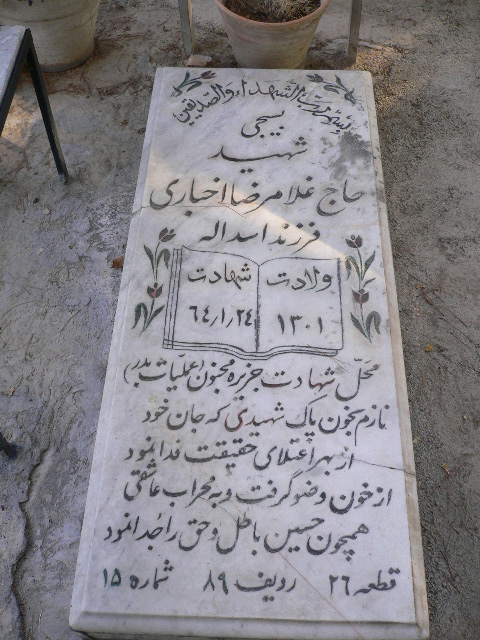 بسم رب الشهداء والصدیقین
بسیجی
شهید
حاج غلامرضا اخباری
فرزند اسداله
ولادت
۱۳۰۱
شهادت
٦٤/۱/۲٤
محل شهادت جزیره مجنون (عملیات بدر)
نازم بخون پاک شهیدی که جان خود
از بهر اعتلای حقیقت فدا نمود
از خون وضو گرفت و به محراب عاشقی
همچون حسین باطل و حق را جدا نمود
قطعه ۲٦ ردیف ۸۹ شماره ۱۵